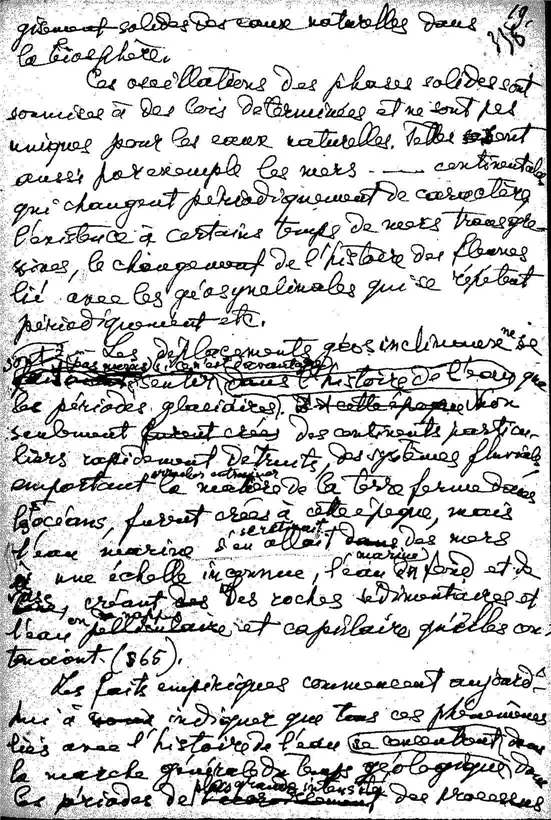 gisement solides des eaux naturelles dans
la biosphère.
Ces oscillations des phases solides sont
soumises à des lois determinées et ne sont pas
uniques pour les eaux naturelles. Telles sont
aussi par exemple les mers continentales
qui changent périodiquement de caractère
l'existence à certains temps de mers transgre-
sives, le changement de l'histoire des fleuves
lié avec les géosynclinales qui se répètent
périodiquement etc.
Les déplacements ne se
sentir dans l'histoire de l'eau que
les périodes glaciaires. non
seulement furent crées des continents particu-
liers rapidement detruits, des systèmes fluvials
emportant la matière de la terre ferme dans
les océans, furent crées à cette époque, mais
l'eau marine s'en allait dans des mers
à une échelle inconnue, l'eau de fond et de
créant des roches sédimentaires et
l'eau pelliculaire et capilaire qu'elles con-
tenaient (§65).
Les faits empiriques commencent aujourd-
hui à indiquer que tous ces phénomènes
liés avec l'histoire de l'eau se concentrent dans
la marche générale du temps géologique dans
les périodes de plus grande intensité des processus